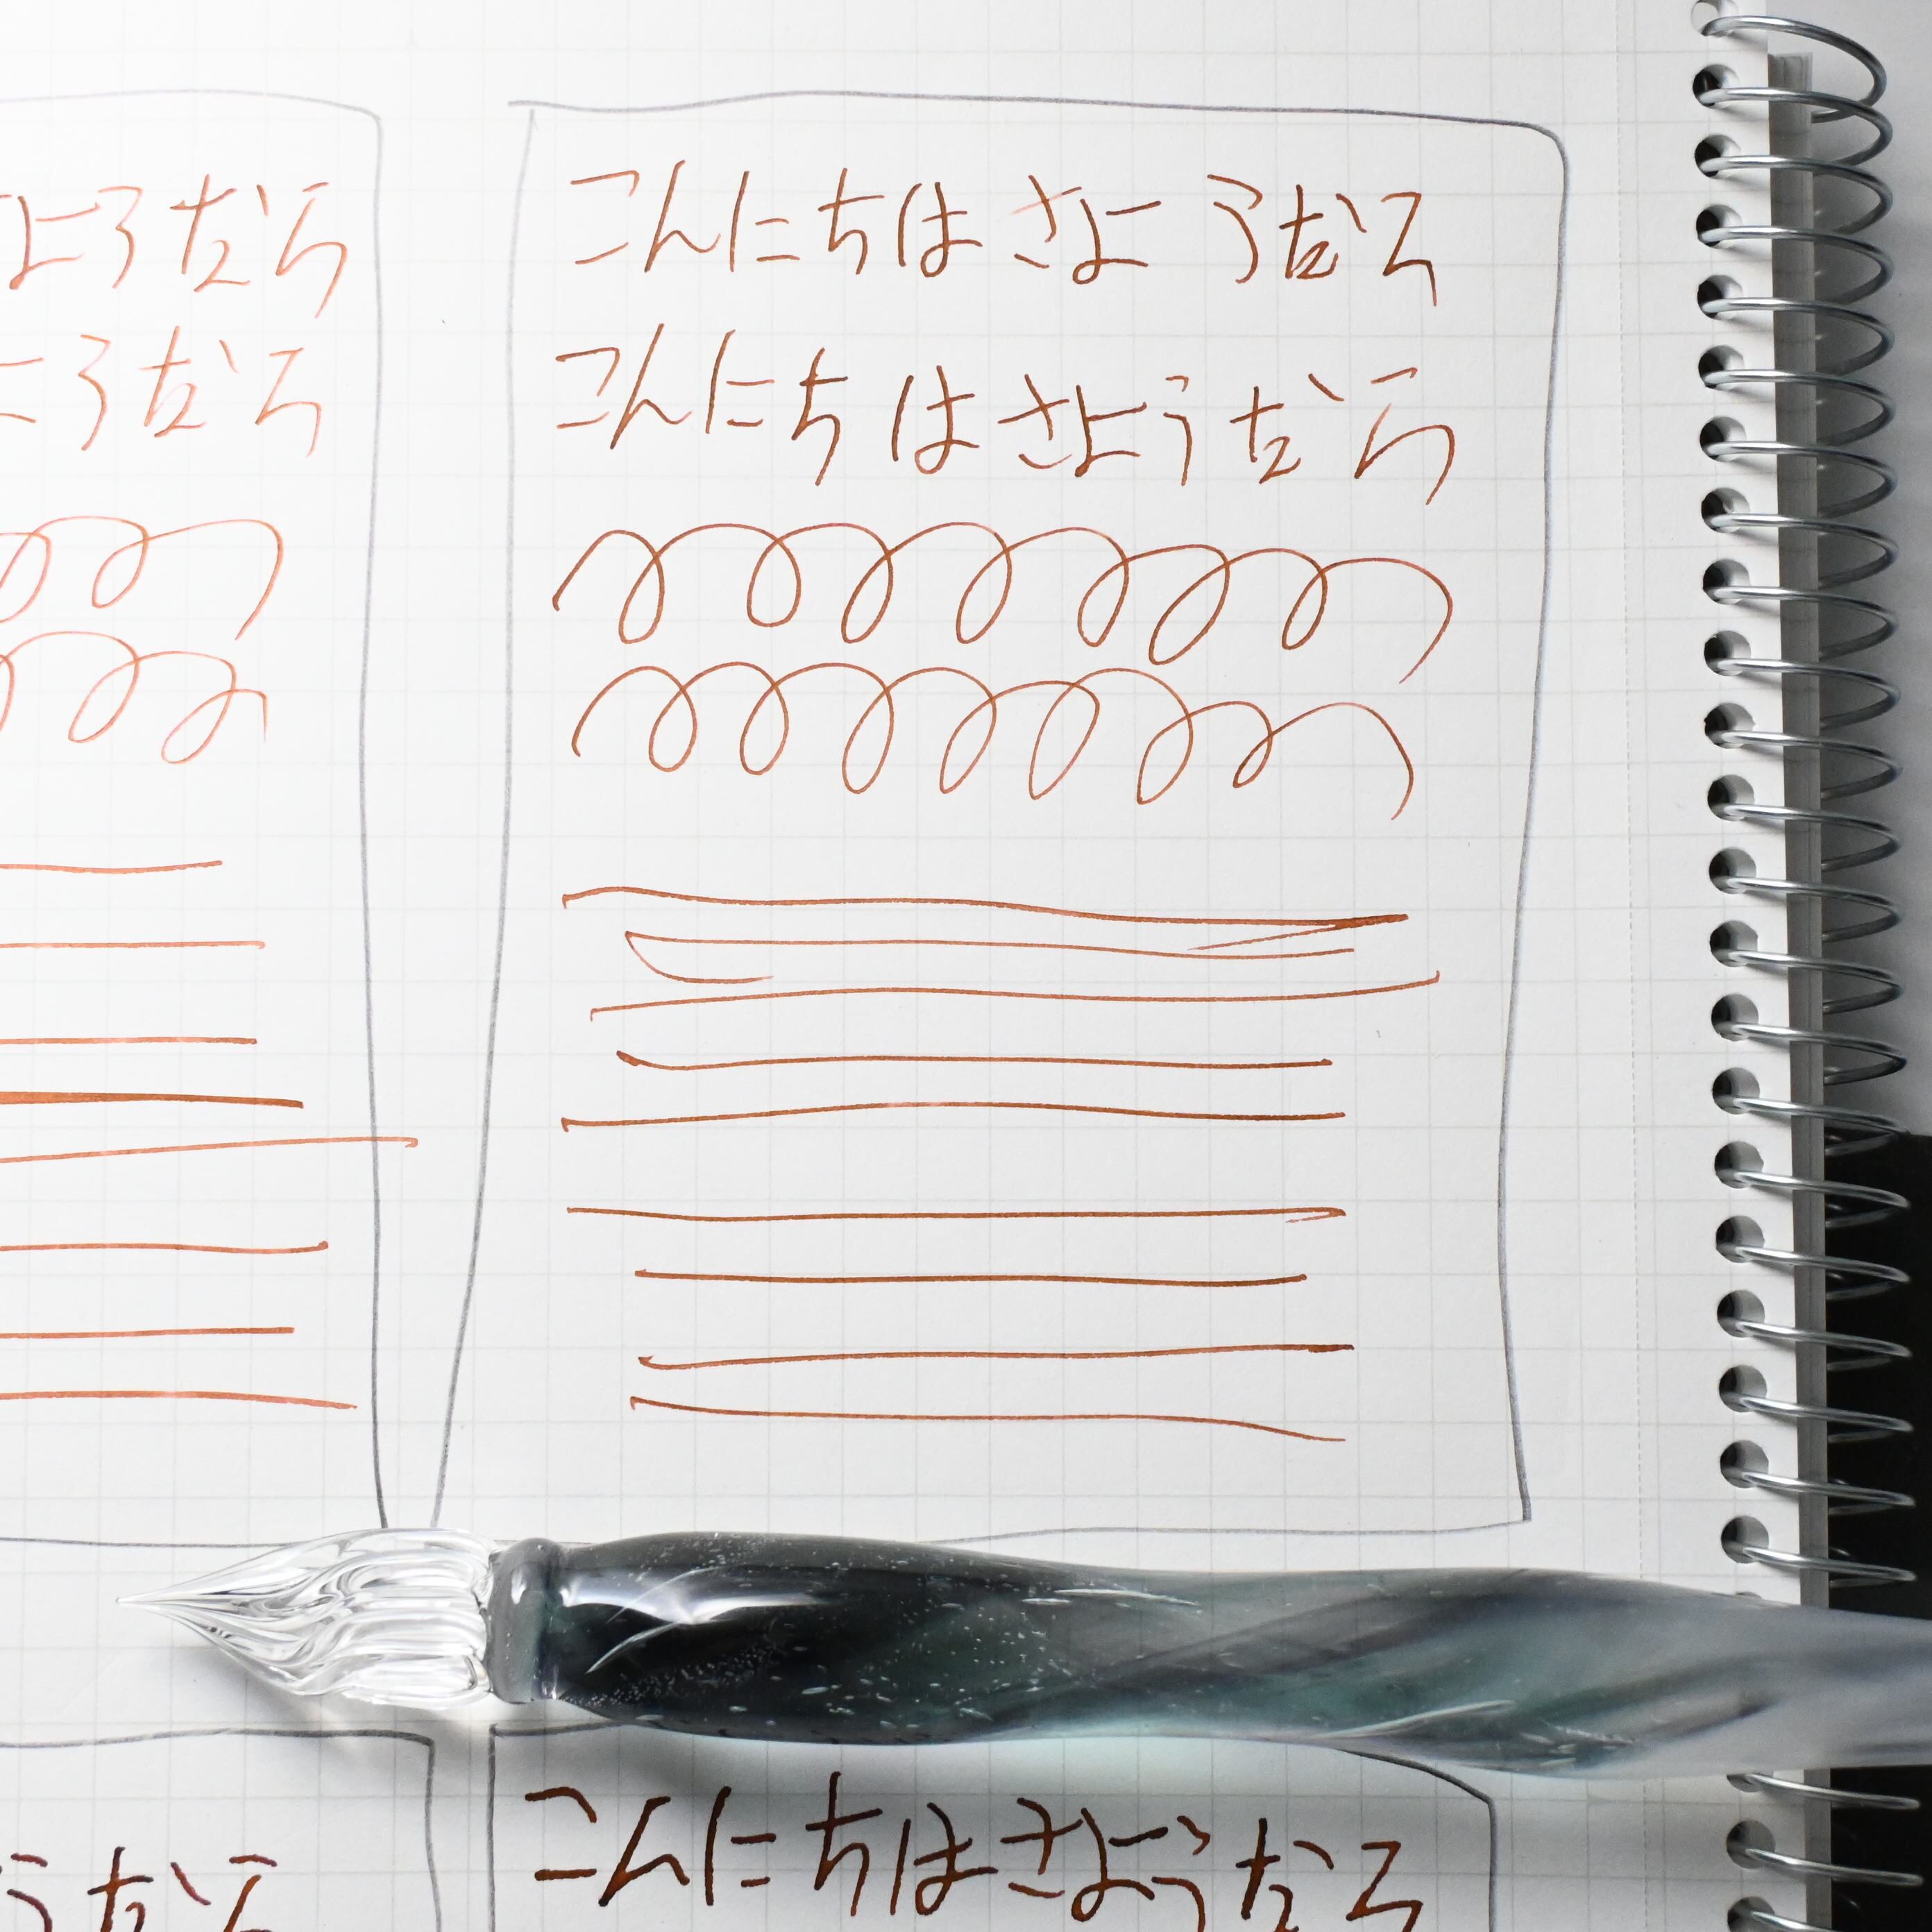 ようなら
ようなら
こんにちは さようなら
こんにちは さようなら
うなら
こんにちはさようなら